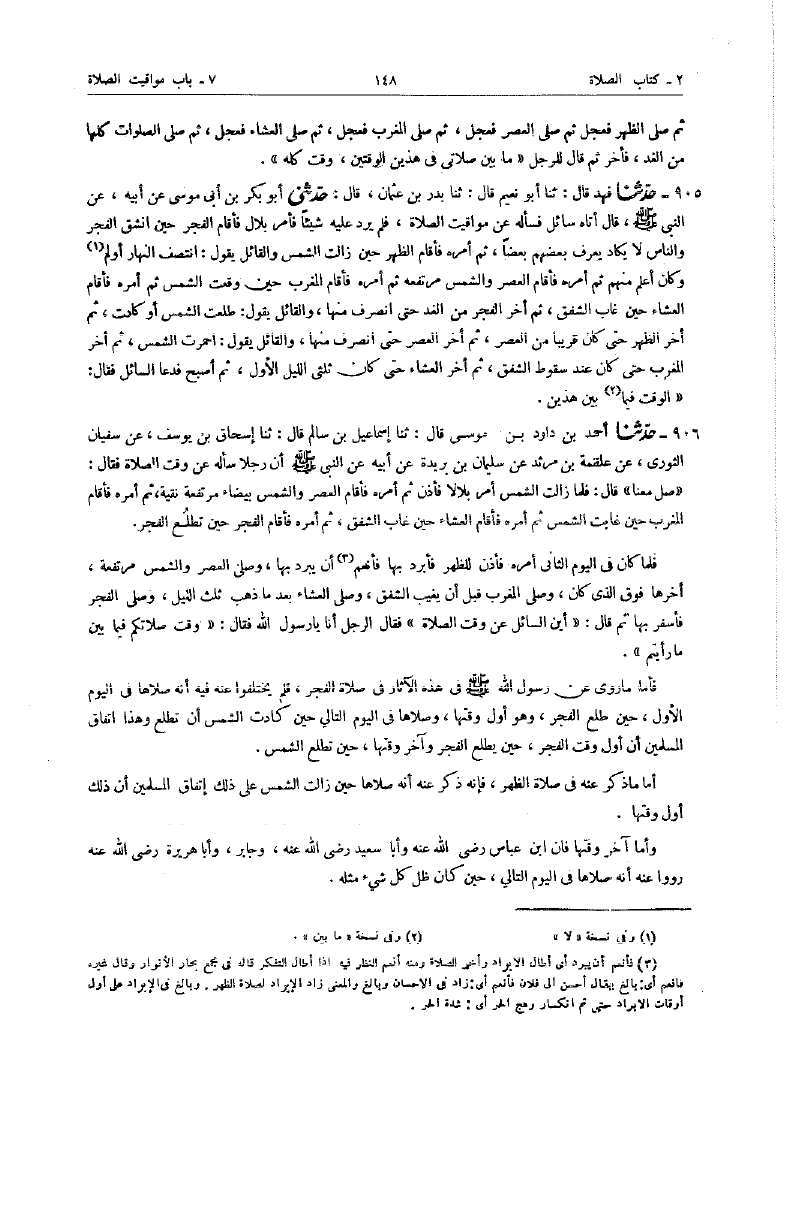 ٢ ـ كتاب الصلاة ١٤٨ ٧ ـ باب مواقيت الصلاة
ثم صلى الظهر فعجل ثم صلى العصر فعجل ، ثم صلى المغرب فعجل ، ثم صلى العشاء فعجل ، ثم صلى الصلوات كلها
من الغد ، فأخر ثم قال للرجل « ما بين صلاتى فى هذين الوقتين ، وقت كله » .
٩٠٥ ـ حدّثنا فهد قال : ثنا أبو نعيم قال : ثنا بدر بن عثمان ، قال : حدّثني أبو بكر بن أبى موسى عن أبيه ، عن
النبى ﷺ ، قال أتاه سائل فسأله عن مواقيت الصلاة ، فلم يرد عليه شيئاً فأمر بلال فأقام الفجر حين انشق الفجر
والناس لا يكاد يعرف بعضهم بعضاً ، ثم أمره فأقام الظهر حين زالت الشمس والقائل يقول : انتصف النهار أولم(١)
وكان أعلم منهم ثم أمره فأقام العصر والشمس مرتفعه ثم أمره فأقام المغرب حين وقعت الشمس ثم أمره فأقام
العشاء حين غاب الشفق ، ثم أخر الفجر من الغد حتى انصرف منها ، والقائل يقول: طلعت الشمس أو كادت ، ثم
أخر الظهر حتى كان قريباً من العصر ، ثم أخر العصر حتى انصرف منها ، والقائل يقول : احمرت الشمس ، ثم أخر
المغرب حتى كان عند سقوط الشفق ، ثم أخر العشاء حتى كان ثلثى الليل الأول ، ثم أصبح فدعا السائل فقال:
« الوقت فيما(٢) بين هذين .
٩٠٦ ـ حدّثنا أحمد بن داود بن موسى قال : ثنا إسماعيل بن سالم قال : ثنا إسحاق بن يوسف ، عن سفيان
الثورى ، عن علقمة بن مرثد عن سليمان بن بريدة عن أبيه عن النبى ﷺ أن رجلا سأله عن وقت الصلاة فقال :
«صل معنا» قال : فلما زالت الشمس أمر بلالا فأذن ثم أمره فأقام العصر والشمس بيضاء مرتفعة نقية،ثم أمره فأقام
المغرب حين غابت الشمس ثم أمره فأقام العشاء حين غاب الشفق ، ثم أمره فأقام الفجر حين تطلُع الفجر.
فلما كان فى اليوم الثانى أمره فأذن للظهر فأبرد بها فأنعم(٣) أن يبرد بها ، وصلى العصر والشمس مرتفعة ،
أخرها فوق الذى كان ، وصلى المغرب قبل أن يغيب الشفق ، وصلى العشاء بعد ما ذهب ثلث الليل ، وصلى الفجر
فأسفر بها ثم قال : « أين السائل عن وقت الصلاة » فقال الرجل أنا يارسول الله فقال : « وقت صلاتكم فيما بين
ما رأيتم » .
فأما ماروى عن رسول الله ﷺ فى هذه الآثار فى صلاة الفجر ، فلم يختلفوا عنه فيه أنه صلاها فى اليوم
الأول ، حين طلع الفجر ، وهو أول وقتها ، وصلاها فى اليوم التالي حين كادت الشمس أن تطلع وهذا اتفاق
المسلمين أن أول وقت الفجر ، حين يطلع الفجر وآخر وقتها ، حين تطلع الشمس .
أما ماذكر عنه فى صلاة الظهر ، فإنه ذكر عنه أنه صلاها حين زالت الشمس على ذلك إتفاق المسلمين أن ذلك
أول وقتها .
وأما آخر وقتها فان ابن عباس رضى الله عنه وأبا سعيد رضى الله عنه ، وجابر ، وأبا هريرة رضى الله عنه
رووا عنه أنه صلاها فى اليوم التالي ، حين كان ظل كل شيء مثله .
(١) وفى نسخة « لا » (٢) وفى نسخة « ما بين » .
(٣) فأنعم أن يبرد أى أطال الابراد وأخر الصلاة ومنه أنعم النظر فيه اذا أطال التفكر قاله فى مجمع بحار الأنوار وقال غيره
فانعم أى: بالغ يقال أحسن الى فلان فأنعم أى: زاد فى الاحسان وبالغ والمعنى زاد الإبراد لصلاة الظهر . وبالغ فى الإبراد على أول
أوقات الابراد حتى تم انكسار وهج الحر أى : شدة الحر .